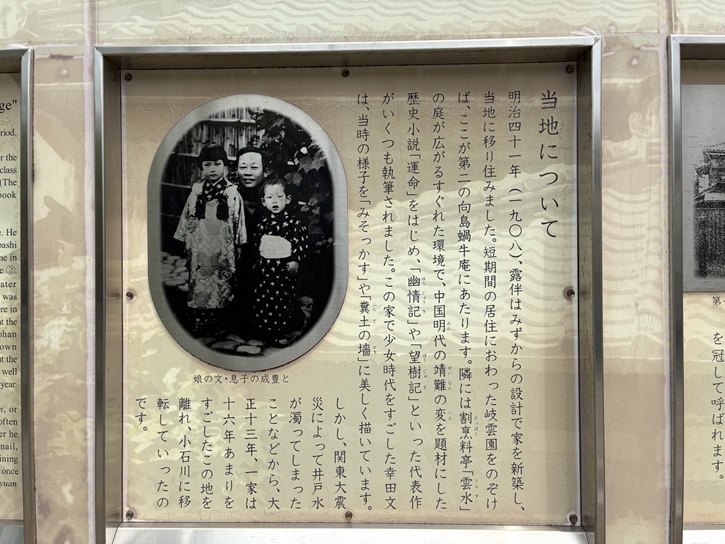 当地について
明治四十一年(一九〇八)、露伴はみずからの設計で家を新築し、
当地に移り住みました。短期間の居住におわった岐雲園をのぞけ
ば、ここが第二の向島蝸牛庵にあたります。隣には割烹料亭「雲水」
の庭が広がるすぐれた環境で、中国明代の靖難の変を題材にした
歴史小説「運命」をはじめ、「幽情記」や「望樹記」といった代表作
がいくつも執筆されました。この家で少女時代をすごした幸田文
は、当時の様子を「みそっかす」や「糞土の墻」に美しく描いています。
しかし、関東大震
災によって井戸水
が濁ってしまった
ことなどから、大
正十三年、一家は
十六年あまりを
すごしたこの地を
離れ、小石川に移
転していったの
です。
娘の文・息子の成豊と
を冠して呼ばれます。
第一
ge"
riod.
r the
class
(The
book
e. He
bashi
me in
e ②.
ater
was
re in
t the
phan
own
t the
well
year.
n, or
often
er he
nail,
ining
once
yuan.